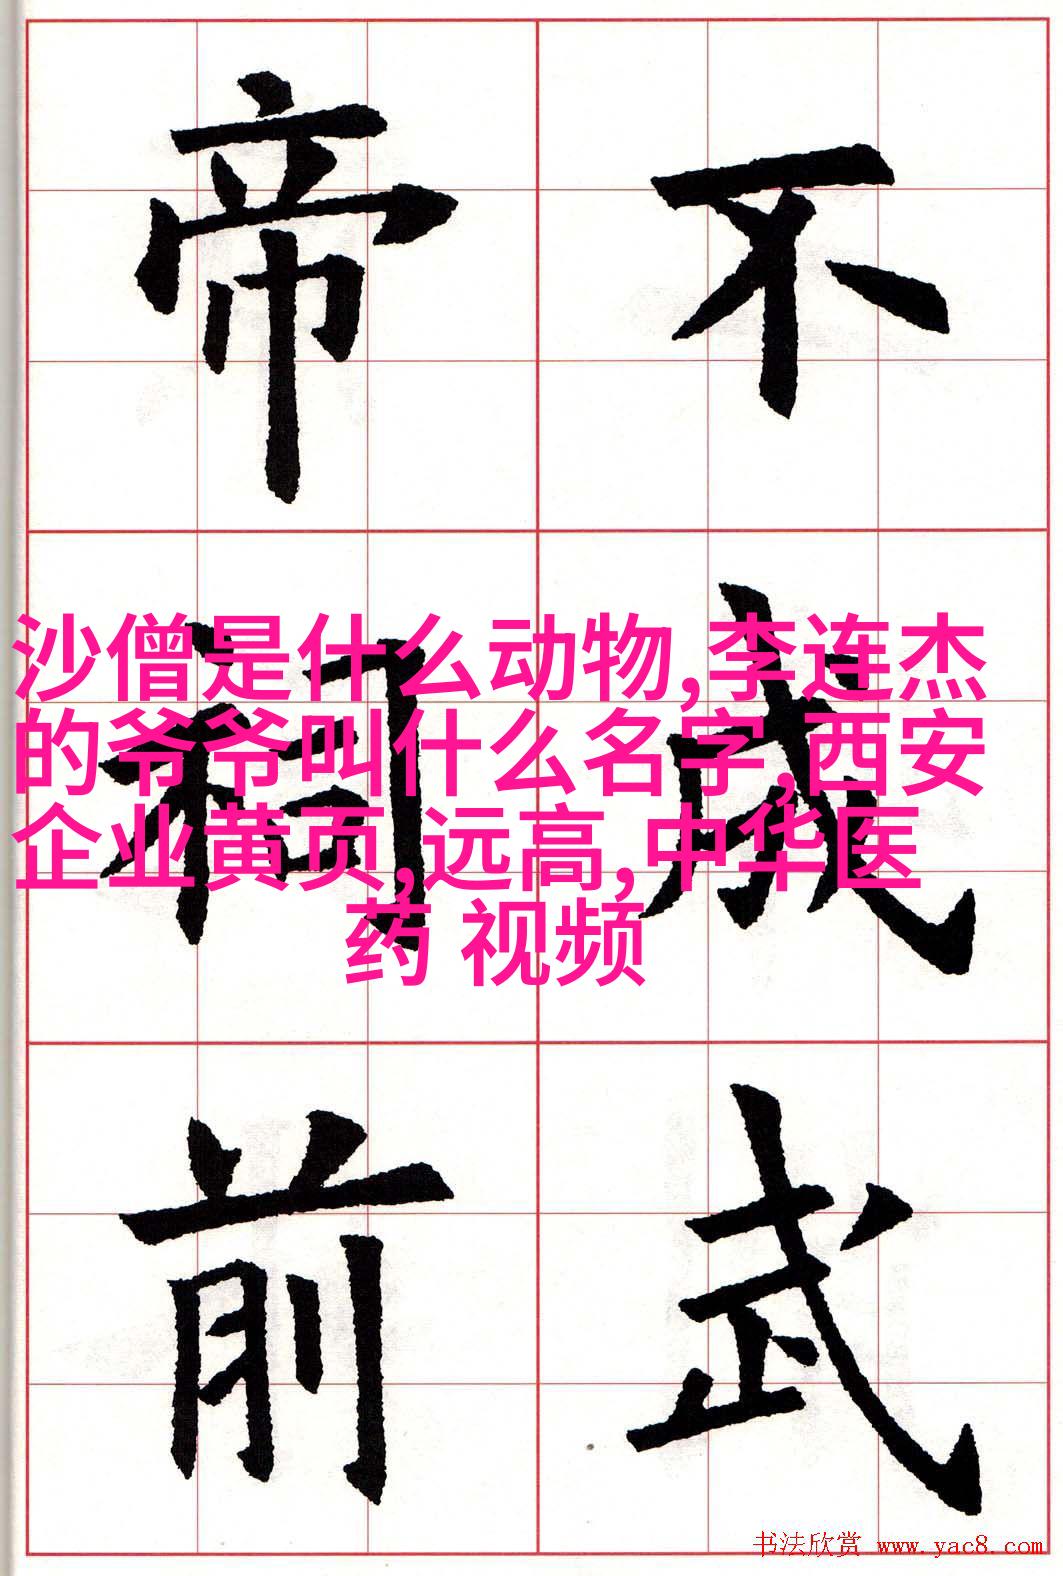 帝 不
祠 成
前 武
沙僧是什么动物,李连杰
的爷爷叫什么名字,西安
企业黄页,远高,中华医
药 视频
书法欣赏 www.yac8.com